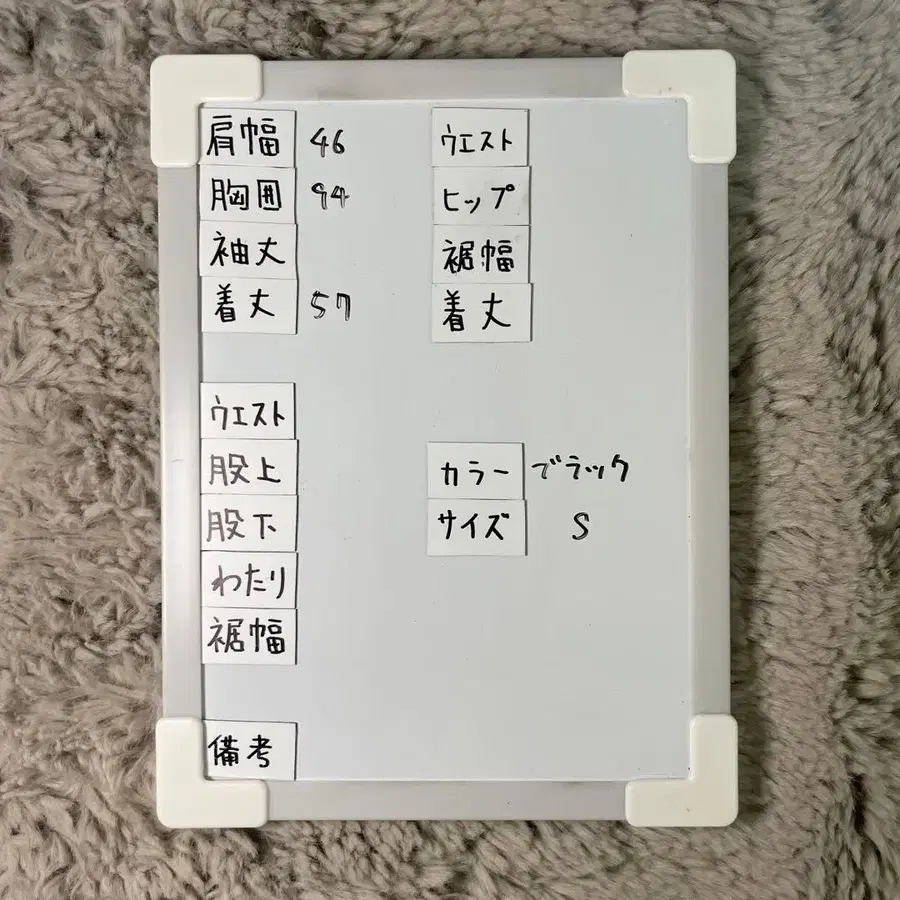 肩幅 46
胸囲 94
袖丈
着丈 57
ウエスト
ヒップ
裾幅
着丈
ウエスト
股上
股下
わたり
裾幅
カラー でラック
サイズ S
備考